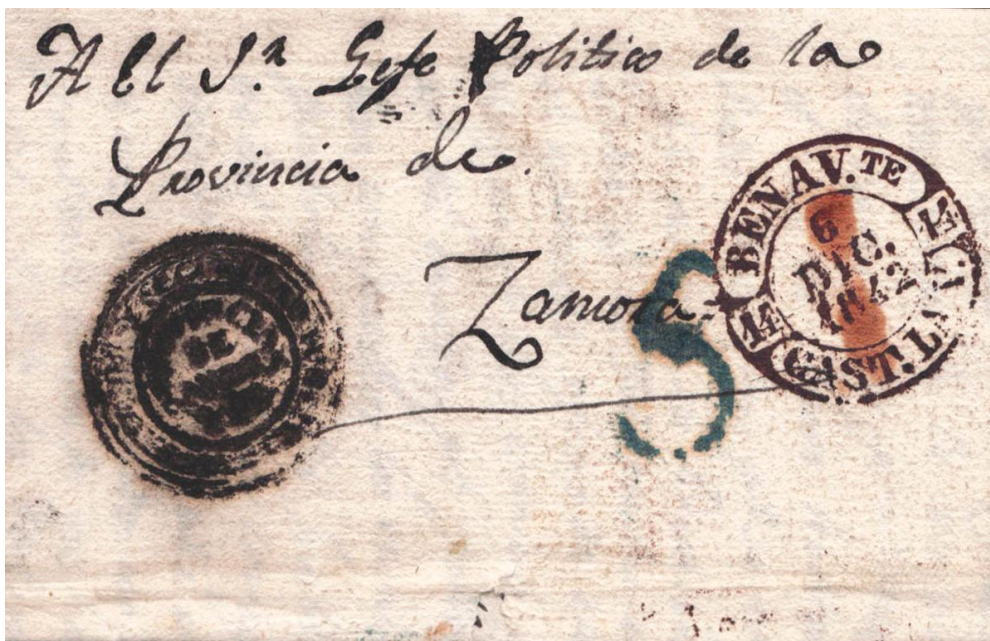 A El S.r Gefe Politico de la
Provincia de.
Zamora=
BENAV.TE
14
6
DIC.
1842
14
CAST. LA V.
S.
DE